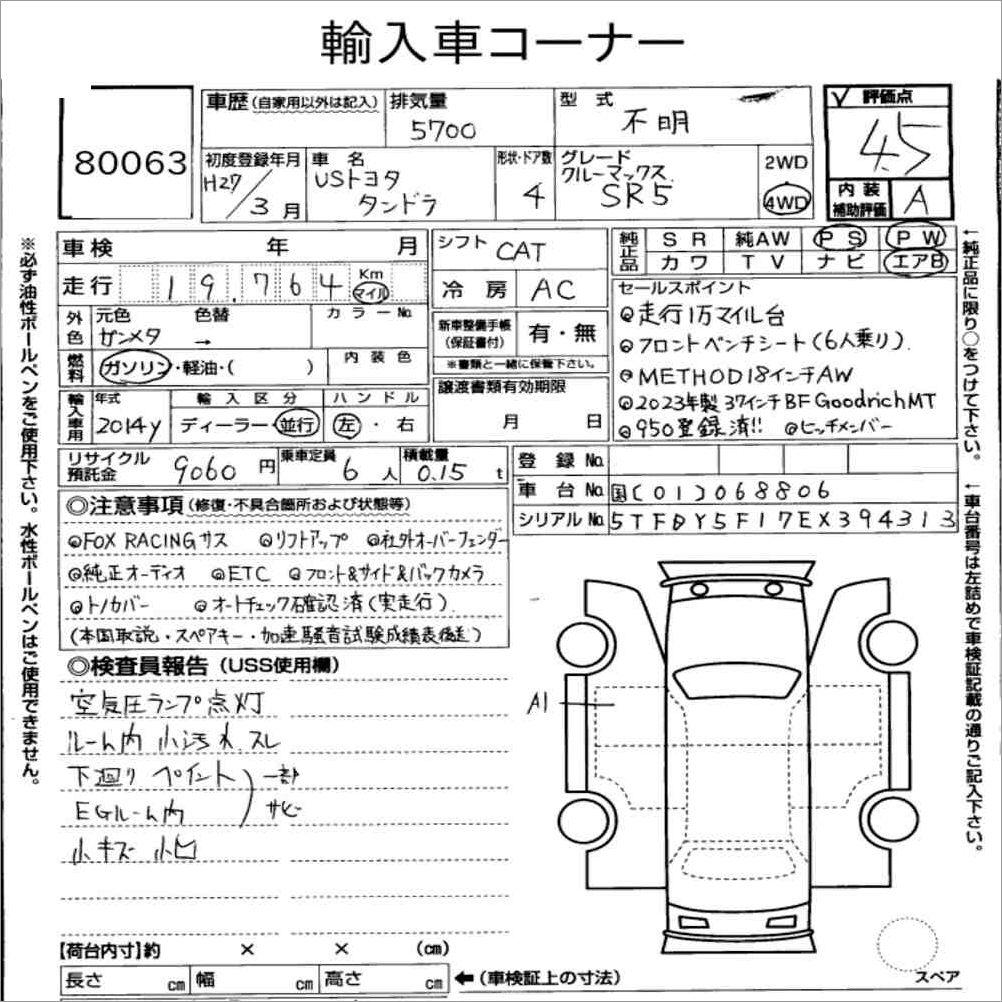 輸入車コーナー
80063
車歴(自家用以外は記入)
排気量
5700
型式
不明
評価点
4.5
内装補助評価
A
初度登録年月
H27/3月
車名
USトヨタ
タンドラ
形状・ドア数
4
グレード
クルーマックス
SR5
2WD
4WD
車検 年 月
シフト CAT
純正品 SR 純AW PS PW
カワ TV ナビ エアB
走行 19.764 Km マイル
冷房 AC
外色 元色 ガンメタ 色替 → カラーNo.
内装色
燃料 ガソリン・軽油・( )
新車整備手帳(保証書付) 有・無
※書類と一緒に保管下さい。
輸入車用 年式 2014y 輸入区分 ディーラー・並行 ハンドル 左・右
譲渡書類有効期限
月 日
セールスポイント
◎走行1万マイル台
◎フロントベンチシート(6人乗り).
◎METHOD18インチAW
◎2023年製37インチBFGoodrichMT
◎950登録済!! ◎ヒッチメンバー
リサイクル預託金 9060円 乗車定員 6人 積載量 0.15t
登録No.
車台No. 国[01]068806
シリアルNo. 5TFDY5F17EX394313
◎注意事項(修復・不具合箇所および状態等)
◎FOX RACINGサス ◎リフトアップ ◎社外オーバーフェンダー
◎純正オーディオ ◎ETC ◎フロント&サイド&バックカメラ
◎トノカバー ◎オートチェック確認済(実走行).
(本国取説・スペアキー・加速騒音試験成績表後送)
◎検査員報告(USS使用欄)
空気圧ランプ点灯
ルーム内 小汚れ スレ
下廻り ペイント 一部
EGルーム内 サビ
小キズ 小凹
A1
【荷台内寸】約 × × (cm)
長さ cm 幅 cm 高さ cm ←(車検証上の寸法)
スペア
※必ず油性ボールペンをご使用下さい。水性ボールペンはご使用できません。
←純正品に限り○をつけて下さい。
←車台番号は左詰めで車検証記載の通りご記入下さい。